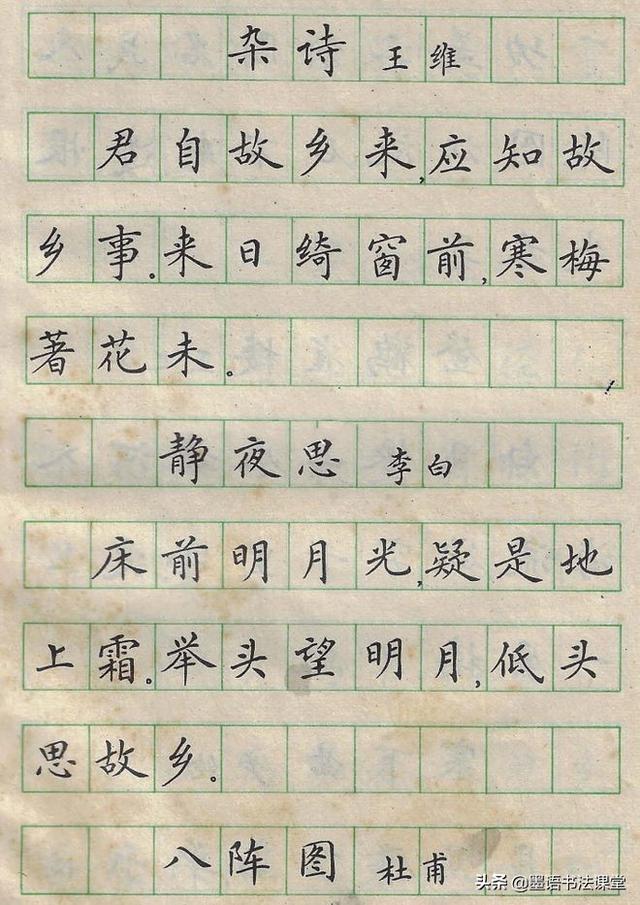 杂诗 王维
君自故乡来,应知故
乡事。来日绮窗前,寒梅
著花未。
静夜思 李白
床前明月光,疑是地
上霜。举头望明月,低头
思故乡。
八阵图 杜甫
头条 @墨语书法课堂